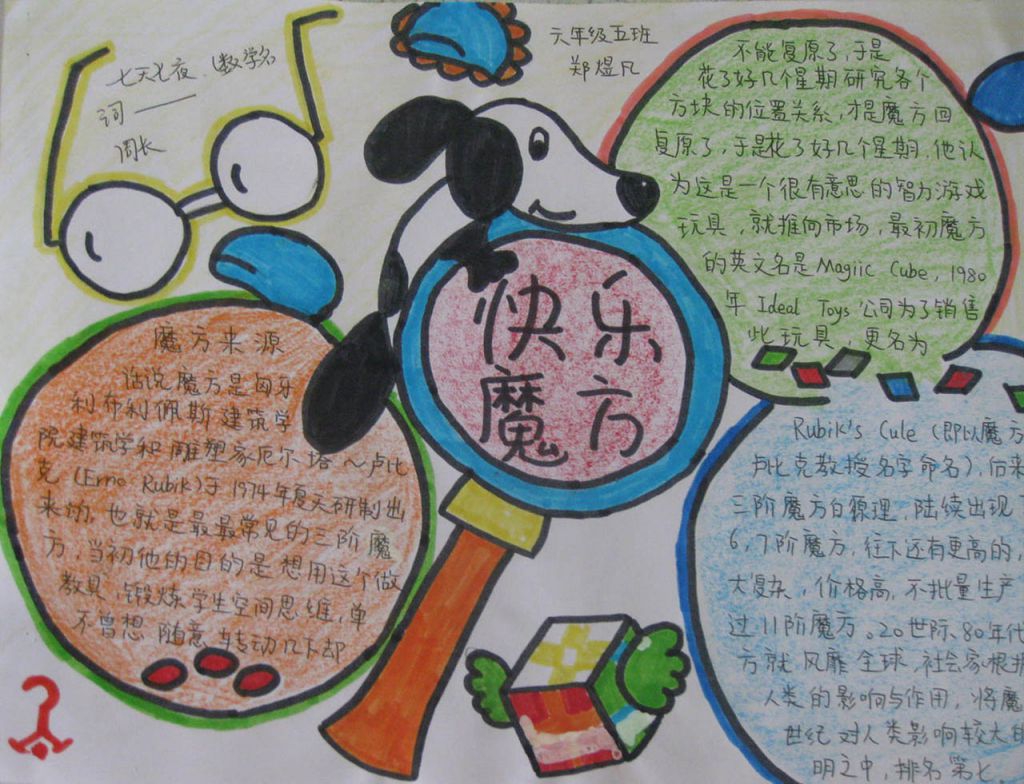 七天七夜《数学名
词——
周长
六年级五班
郑煜凡
快乐
魔方
魔方来源
话说魔方是匈牙
利布利佩斯建筑学
院建筑学和雕塑家厄尔塔～卢比
克(Erno Rubik)于1974年夏天研制出
来的,也就是最最常见的三阶魔
方,当初他的目的是想用这个做
教具,锻炼学生空间思维,单
不曾想 随意 转动几下却
不能复原了,于是
花了好几个星期研究各个
方块的位置关系,才是魔方回
复原了,于是花了好几个星期,他认
为这是一个很有意思的智力游戏
玩具,就推向市场,最初魔方
的英文名是Magiic Cube,1980
年 Ideal Toys公司为了销售
此玩具,更名为
Rubik's Cule (即以魔方
卢比克教授名字命名),后来
三阶魔方白原理,陆续出现
6,7阶魔方,往下还有更高的,
大复杂,价格高,不批量生产
过11阶魔方。20世际、80年代
方就风靡全球 社会家根据
人类的影响与作用,将魔
世纪对人类影响较大的
明之中,排名第七